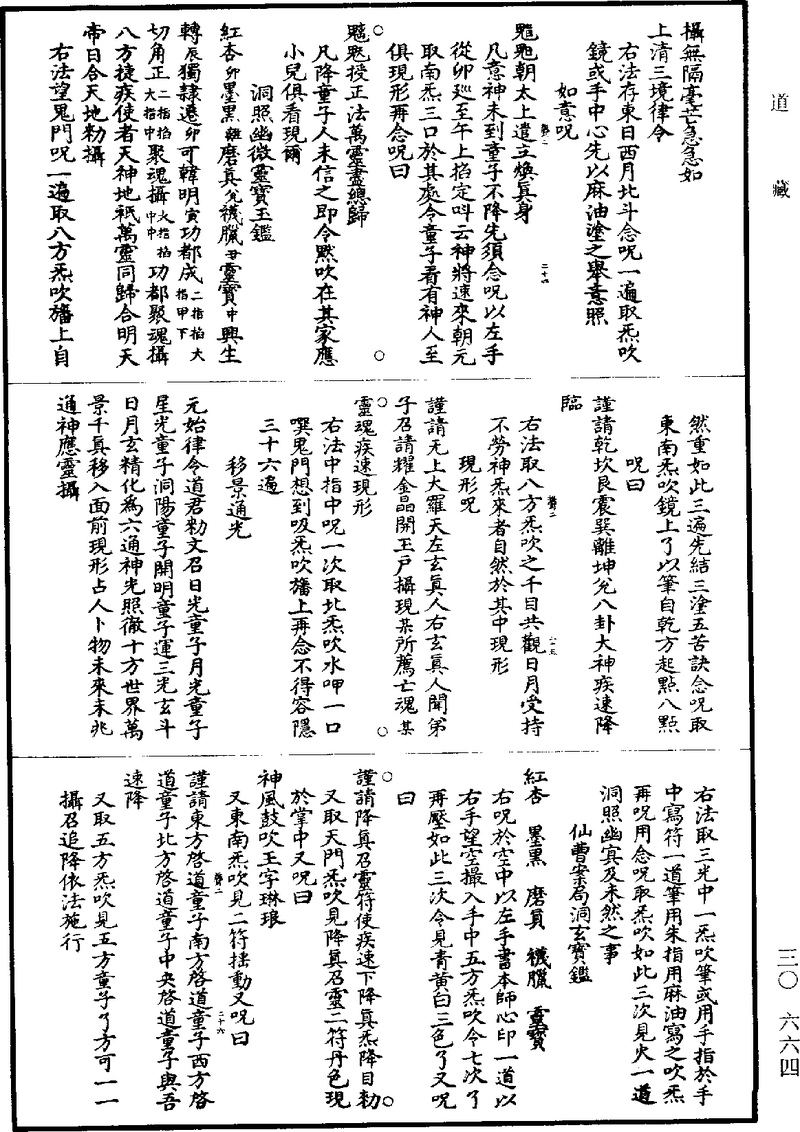 道藏
三〇 六六四
攝無隔毫芒急急如
上清三境律令
右法存東日西月北斗念呪一遍取炁吹
鏡或手中心先以麻油塗之舉意照
如意呪
朝太上遣立煥真身
凡意神未到童子不降先須念呪以左手
從卯廵至午上掐定呌云神將速來朝元
取南炁三口於其處令童子看有神人至
俱現形再念呪曰
授正法萬靈盡總歸
凡降童子人未信之即令黙吹在其家應
小兒俱看現爾
洞照幽微靈寶玉鑑
紅杏卯墨黑離磨真兊襪臘靈寶中興生
轉辰獨隷遷卯可韓明寅功都成二指掐大指甲下
切角正二指掐大指中聚魂攝大指掐中中功都聚魂攝
八方捷疾使者天神地祇萬靈同歸合明天
帝日合天地勑攝
右法望鬼門呪一遍取八方炁吹旛上自
然重如此三遍先結三塗五苦訣念呪取
東南炁吹鏡上了以筆自乾方起點八點
呪曰
謹請乾坎艮震巽離坤兊八卦大神疾速降
臨
右法取八方炁吹之千目共觀日月受持
不勞神炁來者自然於其中現形
現形呪
謹請无上大羅天左玄真人右玄真人開弟
子召請耀金晶開玉户攝現某所薦亡魂某
靈瑰疾速現形
右法中指中呪一次取北炁吹水呷一口
噀鬼門想到吸炁吹旛上再念不得容隱
三十六遍
移景通光
元始律令道君勑文召日光童子月光童子
星光童子洞陽童子開明童子運三光玄斗
日月玄精化爲六通神光照徹十方世界萬
景千真移入面前現形占人卜物未來未兆
通神應靈攝
右法取三光中一炁吹筆或用手指於手
中寫符一道筆用朱指用麻油寫之吹炁
再呪用念呪取炁吹如此三次見火一道
洞照幽冥及未然之事
仙曹案局洞玄寶鑑
紅杏 墨黑 磨真 襪臘 靈寶
右呪於空中以左手書本師心印一道以
右手望空撮入手中五方炁吹令七次了
再壓如此三次令見青黄白三色了又呪
曰
謹請降真召靈符使疾速下降真炁降目勑
又取天門炁吹見降真召靈二符丹色現
於掌中又呪曰
神風鼓吹玉字琳琅
又東南炁吹見二符揺動又呪曰
謹請東方啓道童子南方啓道童子西方啓
道童子北方啓道童子中央啓道童子與吾
速降
又取五方炁吹見五方童子了方可一一
攝召追降依法施行